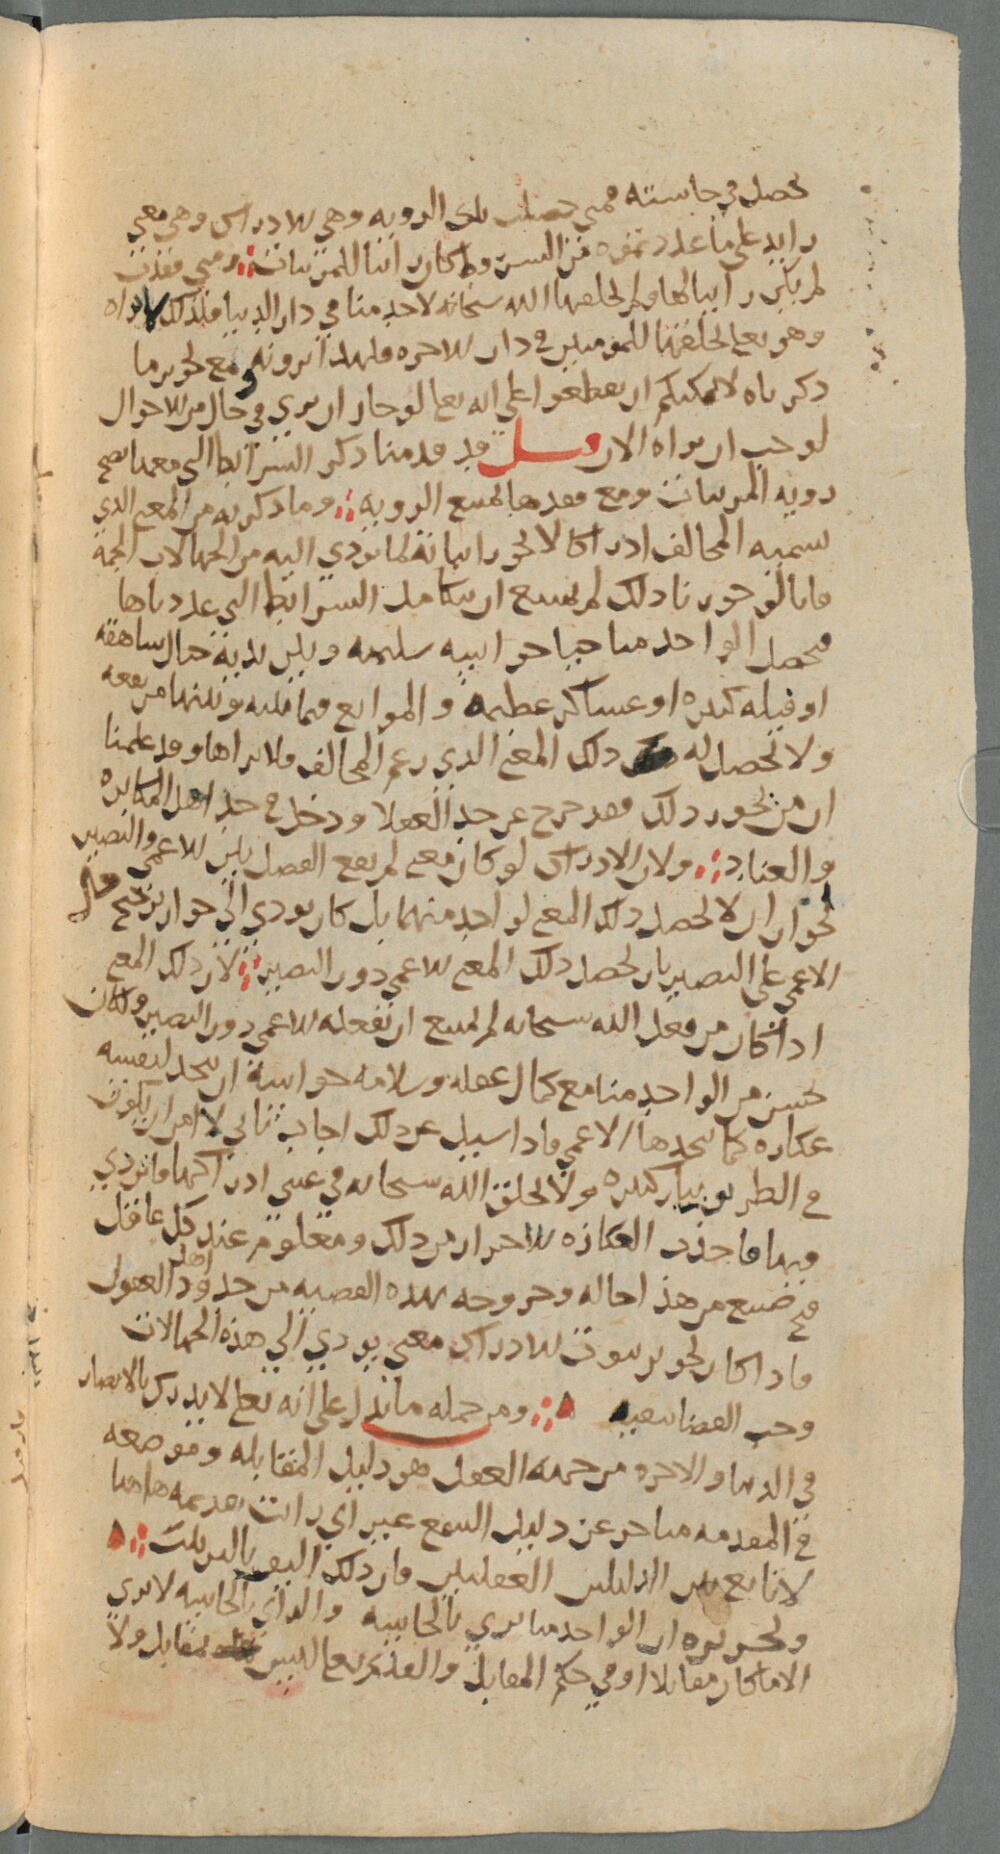 تحصل في حاسته فمتى حصلت تلك الرويه وهي للادراك وهي معنى
زايد على ما عددتموه من الشر وط كان رائيا للمرئيات ومتى فقدت
لم يكن رائيا لها ولم يخلقها الله سبحانه لاحد منا في دار الدنيا فلذلك لا نراه
وهو تعالى يخلقها للمومنين في دار الاخره فلهذا يرونه ومع تجويز ما
ذكرناه لا يمكنكم ان تقطعوا على انه تعالى لو جاز ان يرى في حال من الاحوال
لوجب ان نراه الان فصل قد قدمنا ذكر الشرائط التي معها تصح
رويه المرئيات ومع فقدها تمتنع الرويه وما ذكرته من المعنى الذي
يسميه المخالف ادراكا لا يجوز اثباته لما يودي اليه من الجهالات الجمة
فانا لو جوزنا ذلك لم يمتنع ان تتكامل الشرائط التي عددناها
فيحصل الواحد منا حيا حواسه سليمه وبين يديه جبال شاهقه
او فيله كثيره او عساكر عظيمه و الموانع فيما بينه وبينها مرتفعه
ولا يحصل له ذلك المعنى الذي زعم المخالف فلا يراها وقد علمنا
ان من يجوز ذلك فقد خرج عن حد العقلا ودخل في حد اهل المكابره
والعناد ولان الادراك لو كان معنى لم يقع الفصل بين الاعمى والبصير
لجواز ان لا يحصل ذلك المعنى لواحد منهما بل كان يودي الى جواز ترجيح حال
الاعمى على البصير بان يحصل ذلك المعنى للاعمى دون البصير لان ذلك المعنى
اذا كان من فعل الله سبحانه لم يمتنع ان يفعله للاعمى دون البصير ولكان
يحسن من الواحد منا مع كمال عقله وسلامه حواسه ان يتخذ لنفسه
عكازه كما يتخذها الاعمى فاذا سيل عن ذلك اجاب باني لا امن ان يكون
في الطريق بيار كثيره ولا يخلق الله سبحانه في عيني ادراكها فاتردى
فيها فاخذت العكازه للاحتراز من ذلك ومعلوم عند كل عاقل
قبح صنيع من هذا حاله وخروجه بهذه القضيه من حدود اهل العقول
فاذا كان تجويز ثبوت الادراك معنى يودي الى هذه الجهالات
وجب القضا بنفيه ومن جمله ما يدل على انه تعالى لا يدرك بالابصار
في الدنيا والاخره من جهه العقل هو دليل المقابله وموضعه
في المقدمه متاخر عن دليل السمع غير اني رايت تقديمه هاهنا
لانا نجمع بين الدليلين العقليين فان ذلك اليق بالترتيب
وتحريره ان الواحد منا يرى بالحاسه والرائي بالحاسه لا يرى
الا ما كان مقابلا او في حكم المقابل والقديم تعالى ليس بمقابل ولا